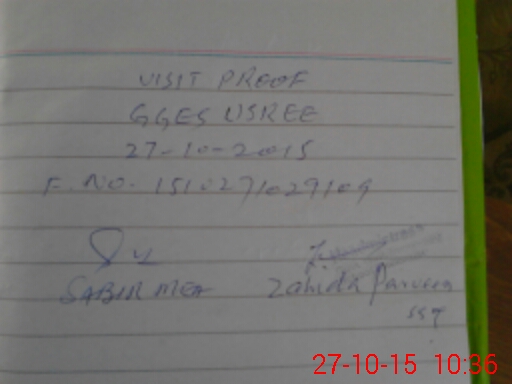 VISIT PROOF
GGES USREE
27-10-2015
F. NO. 1510271029109
SABIR MEA
Zahida Parveen
SST
27-10-15 10:36